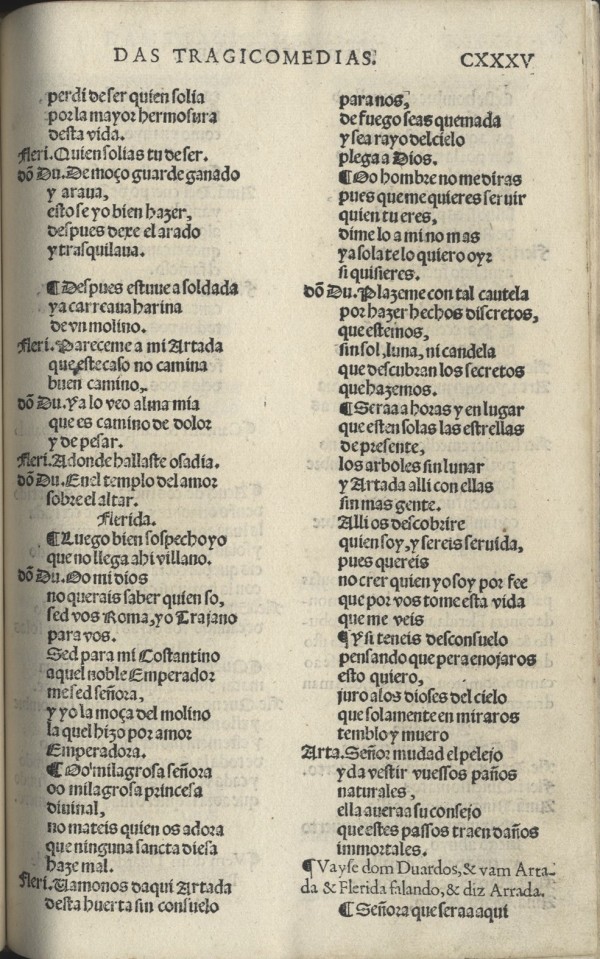 DAS TRAGICOMEDIAS. CXXXV
perdi de ser quien solia
por la mayor hermosura
desta vida.
Fleri. Quien solias tu de ser.
dõ Du. De moço guarde ganado
y araua,
esto se yo bien hazer,
despues dexe el arado
y trasquilaua.
¶ Despues estuue a soldada
y acarreaua harina
de vn molino.
Fleri. Pareceme a mi Artada
que este caso no camina
buen camino,
dõ Du. Ya lo veo alma mia
que es camino de dolor
y de pesar.
Fleri. Adonde hallaste osadia.
dõ Du. En el templo del amor
sobre el altar.
Flerida.
¶ Luego bien sospecho yo
que no llega ahi villano.
dõ Du. Oo mi dios
no querais saber quien so,
sed vos Roma, yo Trajano
para vos.
Sed para mi Costantino
aquel noble Emperador
me sed señora,
y yo la moça del molino
la quel hizo por amor
Emperadora.
¶ Oo milagrosa señora
oo milagrosa princesa
diuinal,
no mateis quien os adora
que ninguna sancta diesa
haze mal.
Fleri. Uamonos daqui Artada
desta huerta sin consuelo
para nos,
de fuego seas quemada
y sea rayo del cielo
plega a Dios.
¶ Oo hombre no me diras
pues que me quieres seruir
quien tu eres,
dime lo a mi no mas
ya sola te lo quiero oyr
si quisieres.
dõ Du. Plazeme con tal cautela
por hazer hechos discretos,
que estemos,
sin sol, luna, ni candela
que descubran los secretos
que hazemos.
¶ Seraa a horas y en lugar
que esten solas las estrellas
de presente,
los arboles sin lunar
y Artada alli con ellas
sin mas gente.
Alli os descobrire
quien soy, y sereis seruida,
pues quereis
no crer quien yo soy por fee
que por vos tome esta vida
que me veis
¶ Y si teneis desconsuelo
pensando que pera enojaros
esto quiero,
juro a los dioses del cielo
que solamente en miraros
temblo y muero
Arta. Señor mudad el pelejo
y da vestir vuessos paños
naturales,
ella aueraa su consejo
que estes passos traen daños
immortales.
¶ Vayse dom Duardos, & vam Arta-
da & Flerida falando, & diz Arrada.
¶ Señora que seraa aqui